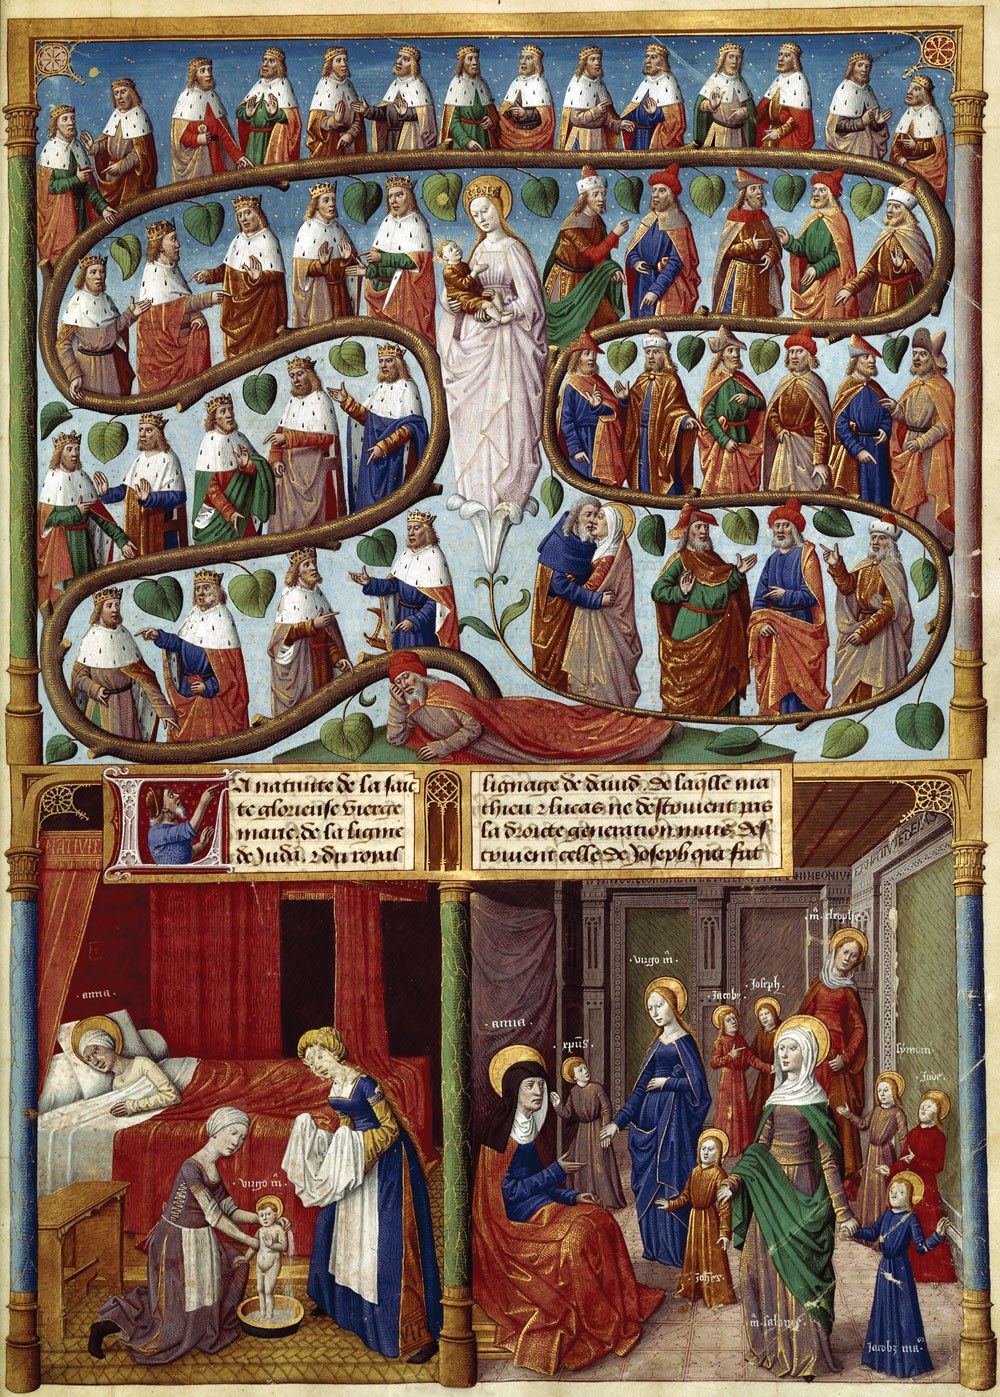 La natiuite de la saic
te glorieuse vierge
marie. de la ligine
de Juda. z du roial
lignage de dauid. de laq̃lle ma
thieu z lucas ne descriuent pas
la droicte generation mais des
criuent celle de Joseph qui fut
NATIVIT
anna
virgo m̃
VIT
anna
xp̃us
virgo m̃
Jacoby
Joseph
m̃ cleophe
symom
Jude
Joh̃es
m̃ salome
Jacobz ma